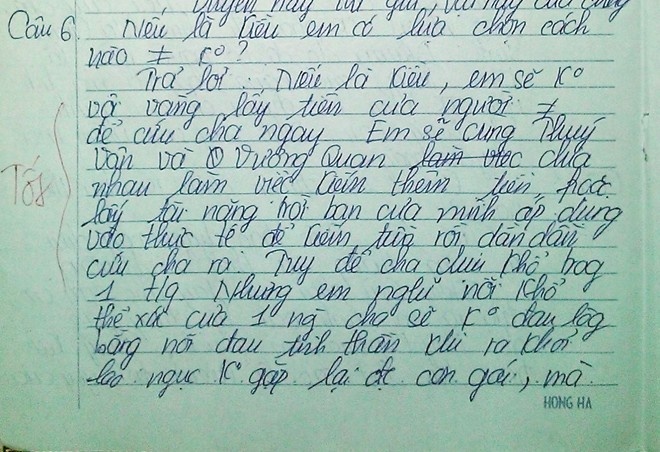 Duyên này thì giữ, vật này của chung
Câu 6. Nếu là Kiều em có lựa chọn cách
nào ≠ K°?
Trả lời: Nếu là Kiều, em sẽ K°
vội vàng lấy tiền của người ≠
để cứu cha ngay. Em sẽ cùng Thuý
Vân và Vương Quan làm việc chia
nhau làm việc kiếm thêm tiền, hoặc
lấy tài năng trời ban của mình áp dụng
Tốt
vào thực tế để kiếm tiền rồi dần dần
cứu cha ra. Tuy để cha chịu khổ trog
1 t/g. Nhưng em nghĩ nỗi khổ
thể xác của 1 ng cha sẽ K° đau lòg
bằng nỗi đau tinh thần khi ra khỏi
lao ngục K° gặp lại đc con gái, mà
HONG HA